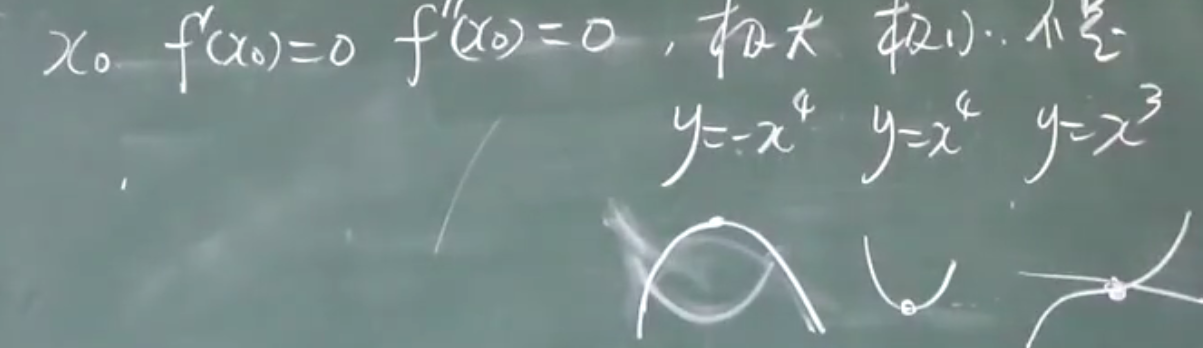 x₀ f'(x₀)=0 f''(x₀)=0, 极大 极小. 不是
y=-x⁴ y=x⁴ y=x³